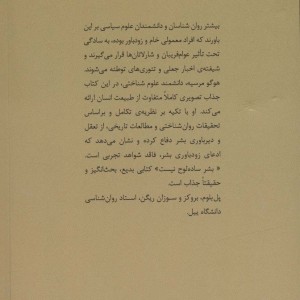 بیشتر روان شناسان و دانشمندان علوم سیاسی بر این
باورند که افراد معمولی خام و زودباور بوده، به سادگی
تحت تأثیر عوام‌فریبان و شارلاتان‌ها قرار می‌گیرند و
شیفته‌ی اخبار جعلی و تئوری‌های توطئه می‌شوند.
هوگو مرسیه، دانشمند علوم شناختی، در این کتاب
جذاب تصویری کاملاً متفاوت از طبیعت انسان ارائه
می‌کند. او با تکیه بر نظریه‌ی تکامل و براساس
تحقیقات روان‌شناختی و مطالعات تاریخی، از تعقل
و دیرباوری بشر دفاع کرده و نشان می‌دهد که
ادعای زودباوری بشر، فاقد شواهد تجربی است.
« بشر ساده‌لوح نیست» کتابی بدیع، بحث‌انگیز و
حقیقتاً جذاب است.
پل‌بلوم، بروکز و سوزان ریگن، استاد روان‌شناسی
دانشگاه ییل.